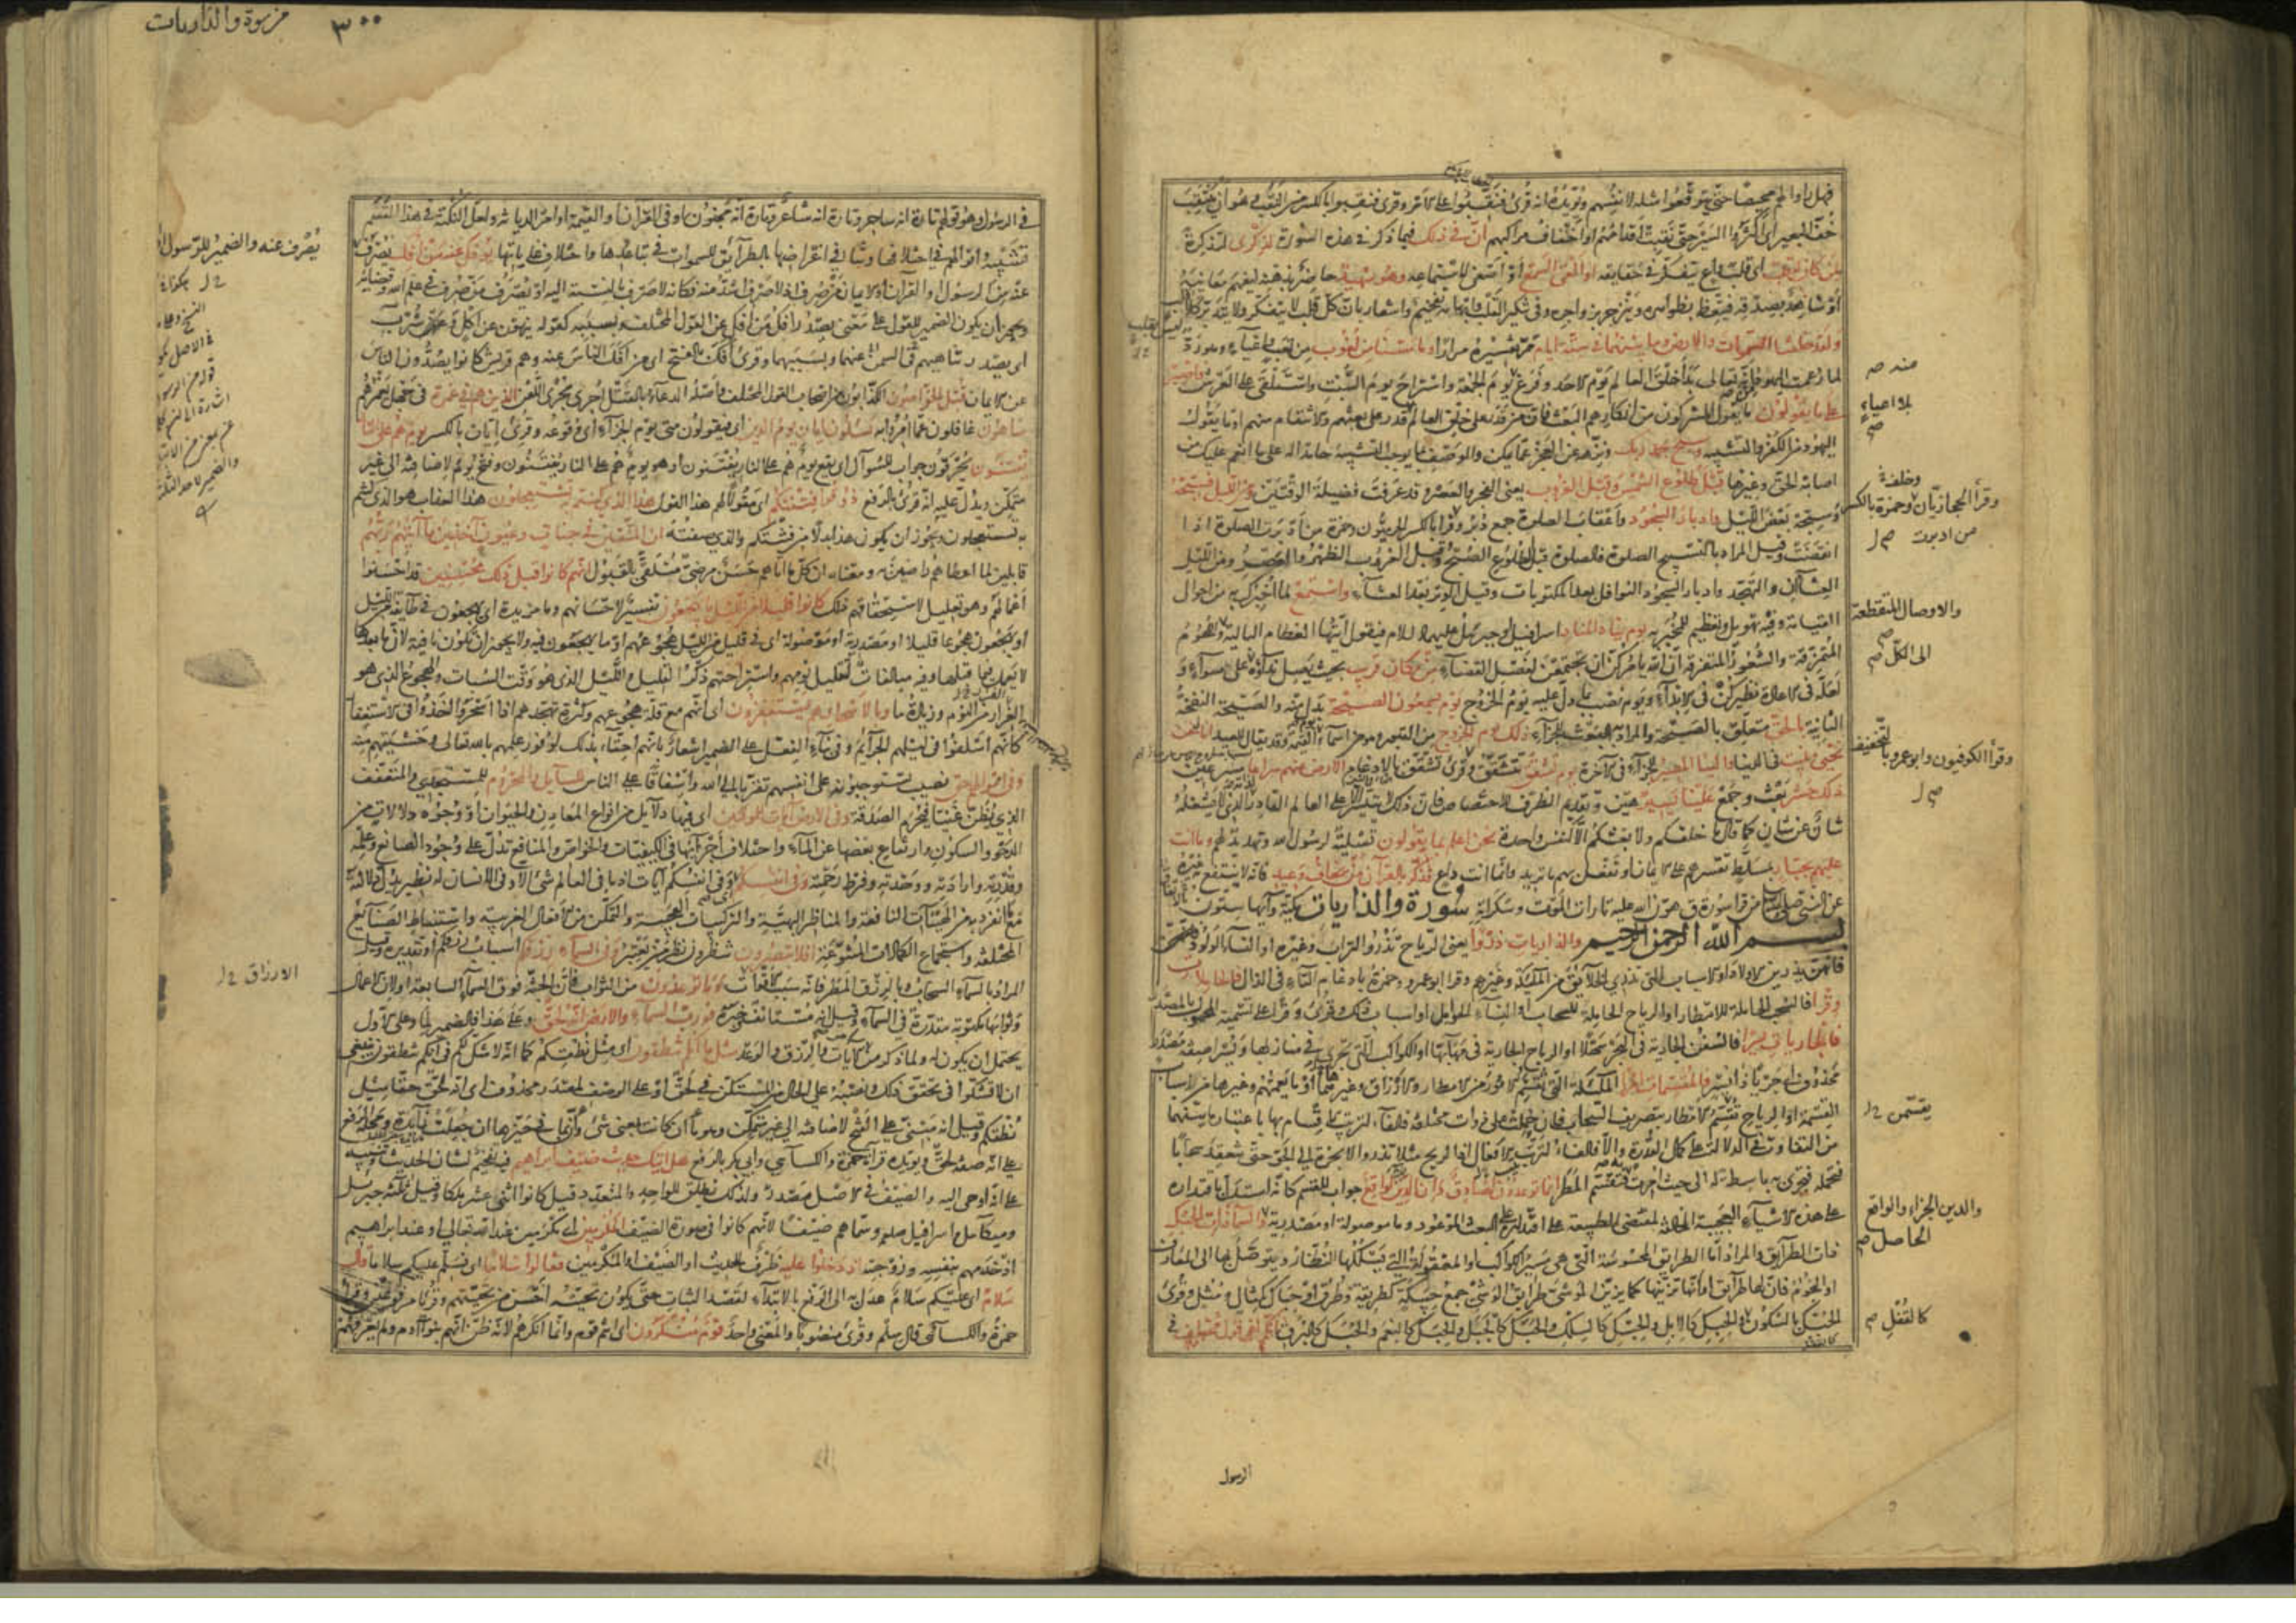 فهل راوا لهم محيصا حتى يتوقعوا مثله لانفسهم ويؤيده انه قرئ فنقبوا على الامر وقرئ فنقبوا بالكسر من النقب وهو ان ينتقب
خف البعير اى اكثروا السير حتى نقبت اقدامهم او اخفاف مراكبهم ان فى ذلك فيما ذكر فى هذه السورة لذكرى لتذكرة
لمن كان له قلب اى قلب واع يتفكر فى حقايقه او القى السمع او اصغى لاستماعه وهو شهيد حاضر بذهنه ليفهم معانيه
او شاهد بصدقه فيتعظ بظواهره وينزجر بزواجره وفى تنكير القلب وابهامه تفخيم واشعار بان كل قلب لا يتفكر ولا يتدبر كلا
ولقد خلقنا السموات والارض وما بينهما فى ستة ايام مر تفسيره مرارا وما مسنا من لغوب من تعب واعياء وهو رد
لما زعمت اليهود من انه تعالى بدأ خلق العالم يوم الاحد وفرغ يوم الجمعة واستراح يوم السبت واستلقى على العرش فاصبر
على ما يقولون ما يقول المشركون من انكارهم البعث فان من قدر على خلق العالم قدر على بعثهم والانتقام منهم او ما يقول
اليهود من الكفر والتشبيه وسبح بحمد ربك ونزهه عن العجز عما يمكن والوصف بما يوجب التشبيه حامدا له على ما انعم عليك من
اصابة الحق وغيرها قبل طلوع الشمس وقبل الغروب يعنى الفجر والعصر وقد عرفت فضيلة الوقتين ومن الليل فسبحه
وسبحه بعض الليل وادبار السجود واعقاب الصلوة جمع دبر وقرأ بالكسر الحرميون وحمزة من ادبرت الصلوة اذا
انقضت وقيل المراد بالتسبيح الصلوة فالصلوة قبل الطلوع الصبح وقبل الغروب الظهر والعصر ومن الليل
العشاآن والتهجد وادبار السجود النوافل بعد المكتوبات وقيل الوتر بعد العشاء واستمع لما اخبرك به من احوال
القيامة وفيه تهويل وتعظيم للمخبر به يوم يناد المناد اسرافيل او جبريل عليهما السلام فيقول ايتها العظام البالية واللحوم
المتمزقة والشعور المتفرقة ان الله يامركن ان تجتمعن لفصل القضاء من مكان قريب بحيث يصل نداؤه الى الكل على سواء و
لعله فى الاعادة نظير كن فى الابداء ويوم نصب بما دل عليه يوم الخروج يوم يسمعون الصيحة بدل منه والصيحة النفخة
الثانية بالحق متعلق بالصيحة والمراد به البعث للجزاء ذلك يوم الخروج من القبور وهو من اسماء القيمة وقد يقال للعيد انا نحن
نحيى ونميت فى الدنيا والينا المصير للجزاء فى الآخرة يوم تشقق تتشقق وقرئ تنشق بالادغام الارض عنهم سراعا مسرعين
ذلك حشر بعث وجمع علينا يسير هين وتقديم الظرف للاختصاص فان ذلك لا يتيسر الا على العالم القادر لذاته الذى لا يشغله
شان عن شان كما قال ما خلقكم ولا بعثكم الا كنفس واحدة نحن اعلم بما يقولون تسلية لرسول الله وتهديد لهم وما انت
عليهم بجبار بمسلط تقسرهم على الايمان او تفعل بهم ما تريد وانما انت داع فذكر بالقرآن من يخاف وعيد فانه لا ينتفع به غيره
عن النبى صلى الله عليه من قرأ سورة ق هون الله عليه تارات الموت وسكراته سورة والذاريات مكية وآيها ستون
بسم الله الرحمن الرحيم والذاريات ذروا يعنى الرياح تذروا التراب وغيره او النساء الولود
فانهن يذرين الاولاد او الاسباب التى تذرى الخلائق من الملئكة وغيرهم وقرأ ابو عمرو وحمزة بادغام التاء فى الذال فالحاملات
وقرا فالسحب الحاملة للامطار او الرياح الحاملة للسحاب او النساء الحوامل او اسباب ذلك وقرئ وقرا على تسمية المحمول بالمصدر
فالجاريات يسرا فالسفن الجارية فى البحر سهلا او الرياح الجارية فى مهابها او الكواكب التى تجرى فى منازلها ويسرا صفة مصدر
محذوف اى جريا ذا يسر فالمقسمات امرا الملئكة التى تقسم الامور من الامطار والارزاق وغيرها او ما يعمهم وغيرها من الاسباب
القسمة او الرياح تقسم الامطار بتصريف السحاب فان حملت على ذوات مختلفة فالفاء لترتيب الاقسام بها باعتبار ما بينهما
من التفاوت فى الدلالة على كمال القدرة والا فالفاء لترتيب الافعال اذ الريح مثلا تذرو الابخرة الى الجو حتى تنعقد سحابا
فتحمله فتجرى به باسطة له الى حيث امرت فتقسم المطر انما توعدون لصادق وان الدين لواقع جواب للقسم كانه استدل باقتداره
على هذه الاشياء العجيبة المخالفة لمقتضى الطبيعة على اقتداره على البعث الموعود وما موصولة او مصدرية والسماء ذات الحبك
ذات الطرائق والمراد اما الطرايق المحسوسة التى هى مسير الكواكب او المعقولة التى يسلكها النظار ويتوصل بها الى المعارف
او النجوم فان لها طرايق او انها تزينها كما يزين الموشى طرايق الوشى جمع حبيكة كطريقة وطرق او حباك كمثال ومثل وقرئ
الحبك بالسكون والحبك كالابل والحبك كالسلك والحبك كالجبل والحبك كالنعم والحبك كالبرق انكم لفى قول مختلف فى
منه صح
بلا اعياء صح
وخلفة
وقرأ الحجازيان وحمزة بالكسر
من ادبرت صح
والاوصال المتقطعة
الى الكل صح
وقرأ الكوفيون وابو عمرو بالتخفيف
يقتسمن
والدين الجزاء والواقع
الحاصل صح
كالقفل صح
الرسول
من سورة والذاريات ٣٠٠
فى الرسول وهو قولهم تارة انه ساحر وتارة انه شاعر وتارة انه مجنون او فى القرآن او القيمة او امر الديانة ولعل النكتة فى هذا القسم
تشبيه اقوالهم فى اختلافها وتنافى اغراضها بالطرآيق للسموات فى تباعدها واختلاف غاياتها يؤفك عنه من افك يصرف
عنه من كالرسول والقرآن او الايمان من صرف اذ لا صرف اشد منه فكانه لا صرف بالنسبة اليه او يصرف من صرف فى علم الله وقضايه
ويجوز ان يكون الضمير للقول على معنى يصدر افك من افك عن القول المختلف وبسببه كقوله ينهون عن اكل وعن شرب
اى يصدر تناهيهم فى السمن عنهما وبسببهما وقرئ افك بالفتح اى من افك الناس عنه وهم قريش كانوا يصدون الناس
عن الايمان قتل الخراصون الكذابون من اصحاب القول المختلف واصله الدعاء بالقتل اجرى مجرى اللعن الذين هم فى غمرة فى جهل يغمرهم
ساهون غافلون عما امروا به يسئلون ايان يوم الدين اى فيقولون متى يوم الجزاء اى وقوعه وقرئ ايان بالكسر يوم هم على النار
يفتنون يحرقون جواب للسؤال اى يقع يوم هم على النار يفتنون او هو يوم هم على النار يفتنون وفتح يوم لاضافته الى غير
متمكن ويدل عليه انه قرئ بالرفع ذوقوا فتنتكم اى مقولا لهم هذا القول هذا الذى كنتم به تستعجلون هذا العذاب هو الذى كنتم
به تستعجلون ويجوز ان يكون هذا بدلا من فتنتكم والذى صفته ان المتقين فى جنات وعيون آخذين ما آتيهم ربهم
قابلين لما اعطاهم راضين به ومعناه ان كل ما اتاهم حسن مرضى متلقى بالقبول انهم كانوا قبل ذلك محسنين قد احسنوا
اعمالهم وهو تعليل لاستحقاقهم ذلك كانوا قليلا من الليل ما يهجعون تفسير لاحسانهم وما مزيدة اى يهجعون فى طايفة من الليل
او يهجعون هجوعا قليلا او مصدرية او موصولة اى فى قليل من الليل هجوعهم او ما يهجعون فيه ولا يجوز ان تكون نافية لان ما بعدها
لا يعمل فيما قبلها وفيه مبالغات لتقليل نومهم واستراحتهم ذكر القليل والليل الذى هو وقت السبات والهجوع الذى هو
الغرار من النوم وزيادة ما وبالاسحار هم يستغفرون اى انهم مع قلة هجوعهم وكثرة تهجدهم اذا اسحروا اخذوا فى الاستغفار
كانهم اسلفوا فى ليلهم الجرائم وفى بناء الفعل على الضمير اشعار بانهم احقاء بذلك لوفور علمهم بالله تعالى وخشيتهم منه
وفى اموالهم حق نصيب يستوجبونه على انفسهم تقربا الى الله واشفاقا على الناس للسائل والمحروم للمستجدى والمتعفف
الذى يظن غنيا فيحرم الصدقة وفى الارض آيات للموقنين اى فيها دلايل من انواع المعادن والحيوان او وجوه دلالات من
الدحو والسكون وارتفاع بعضها عن الماء واختلاف اجزائها فى الكيفيات والخواص والمنافع تدل على وجود الصانع وعلمه
وقدرته وارادته ووحدته وفرط رحمته وفى انفسكم اى وفى انفسكم آيات اذ ما فى العالم شئ الا وفى الانسان له نظير يدل دلالته
مع ما انفرد به من الهيئات النافعة والمناظر البهية والتركيبات العجيبة والتمكن من الافعال الغريبة واستنباط الصنايع
المختلفة واستجماع الكمالات المتنوعة افلا تبصرون تنظرون نظر من يعتبر وفى السماء رزقكم اسباب رزقكم او تقديره وقيل
المراد بالسماء السحاب وبالرزق المطر فانه سبب الاقوات وما توعدون من الثواب فان الجنة فوق السماء السابعة او لان الاعمال
وثوابها مكتوبة مقدرة فى السماء وقيل انه مستانف خبره فورب السماء والارض انه لحق وعلى هذا فالضمير لما وعلى الاول
يحتمل ان يكون له ولما ذكر من الآيات والرزق والوعد مثل ما انكم تنطقون اى مثل نطقكم كما انه لا شك لكم فى انكم تنطقون ينبغى
ان لا تشكوا فى تحقق ذلك ونصبه على الحال من المستكن فى لحق او على الوصف لمصدر محذوف اى انه لحق حقا مثل
نطقكم وقيل انه مبنى على الفتح لاضافته الى غير متمكن وهو ما ان كانت بمعنى شئ وان بما فى حيزها ان جعلت زايدة ومحله الرفع
على انه صفة لحق ويؤيده قراءة حمزة والكسآئى وابى بكر بالرفع هل اتيك حديث ضيف ابراهيم فيه تفخيم لشان الحديث وتنبيه
على انه اوحى اليه والضيف فى الاصل مصدر ولذلك يطلق للواحد والمتعدد قيل كانوا اثنى عشر ملكا وقيل ثلثة جبريل
وميكائيل واسرافيل وسماهم ضيفا لانهم كانوا فى صورة الضيف المكرمين اى مكرمين عند الله تعالى او عند ابراهيم
اذ خدمهم بنفسه وزوجته اذ دخلوا عليه ظرف للحديث او الضيف او المكرمين فقالوا سلاما اى نسلم عليكم سلاما قال
سلام اى عليكم سلام عدل به الى الرفع بالابتداء لقصد الثبات حتى يكون تحيته احسن من تحيتهم وقرئا مرفوعين وقرأ
حمزة والكسائى قال سلم وقرئ منصوبا والمعنى واحد قوم منكرون اى انتم قوم وانما انكرهم لانه ظن انهم بنو آدم ولم يعرفهم
يصرف عنه والضمير للرسول او
الارزاق